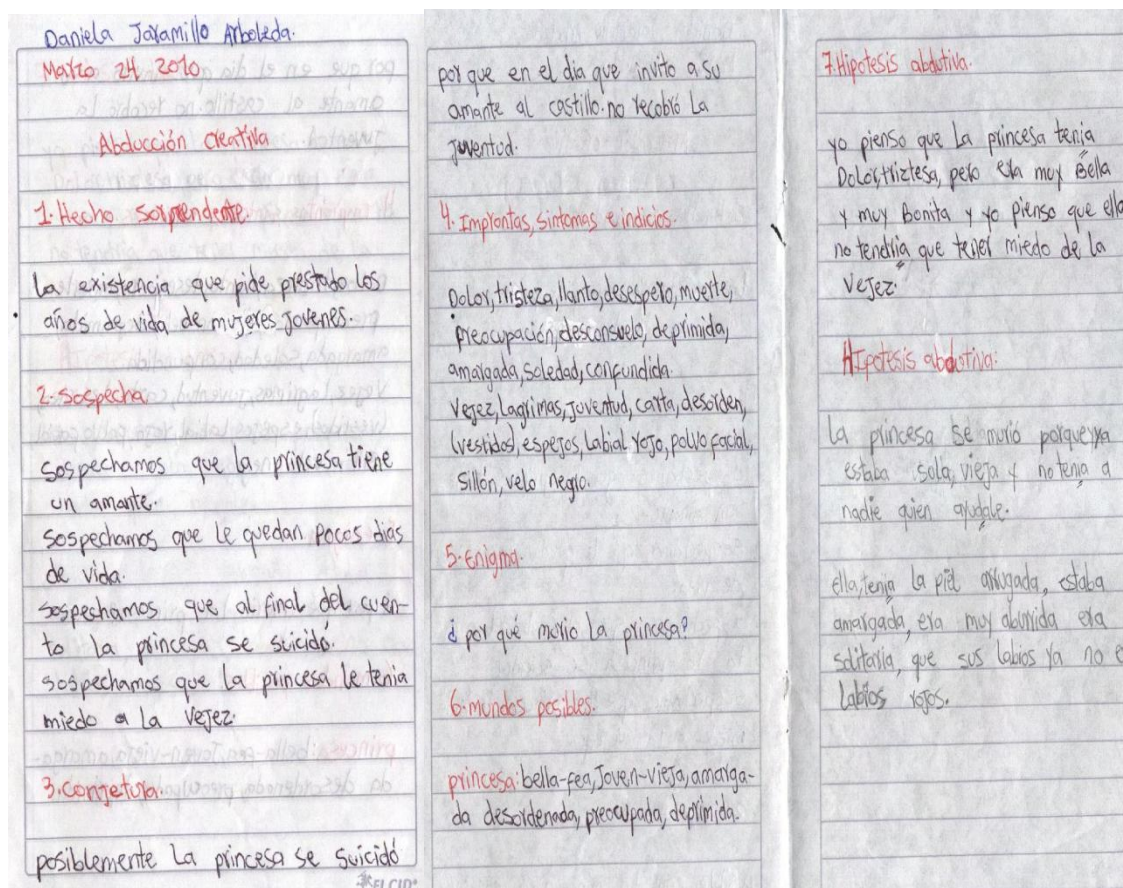 Daniela Jaramillo Arboleda.
Marzo 24 2010
Abducción creativa
1. Hecho sorprendente.
La existencia que pide prestado los
años de vida de mujeres jovenes.
2. sospecha
sospechamos que la princesa tiene
un amante.
sospechamos que le quedan pocos dias
de vida.
sospechamos que al final del cuen-
to la princesa se suicidó.
sospechamos que la princesa le tenia
miedo a la vejez.
3. conjetura.
posiblemente la princesa se suicidó
EL CID
por que en el dia que invito a su
amante al castillo. no recobró la
juventud.
4. Improntas, sintomas e indicios.
Dolor, tristeza, llanto, desespero, muerte,
preocupación, desconsuelo, deprimida,
amargada, soledad, confundida.
vejez, lagrimas, juventud, carta, desorden,
(vestidos), espejos, labial rojo, polvo facial,
sillón, velo negro.
5. enigma.
¿por qué murio la princesa?
6. mundos posibles.
princesa: bella-fea, joven-vieja, amarga-
da desordenada, preocupada, deprimida.
7. Hipotesis abdutiva.
yo pienso que la princesa tenia
Dolor, triztesa, pero era muy Bella
y muy Bonita y yo pienso que ella
no tendria que tener miedo de la
vejez.
Hipotesis abductiva:
la princesa se murió porque ya
estaba sola, vieja y no tenia a
nadie quien ayudale.
ella, tenia la piel arrugada, estaba
amargada, era muy aburrida era
solitaria, que sus labios ya no e
labios rojos.